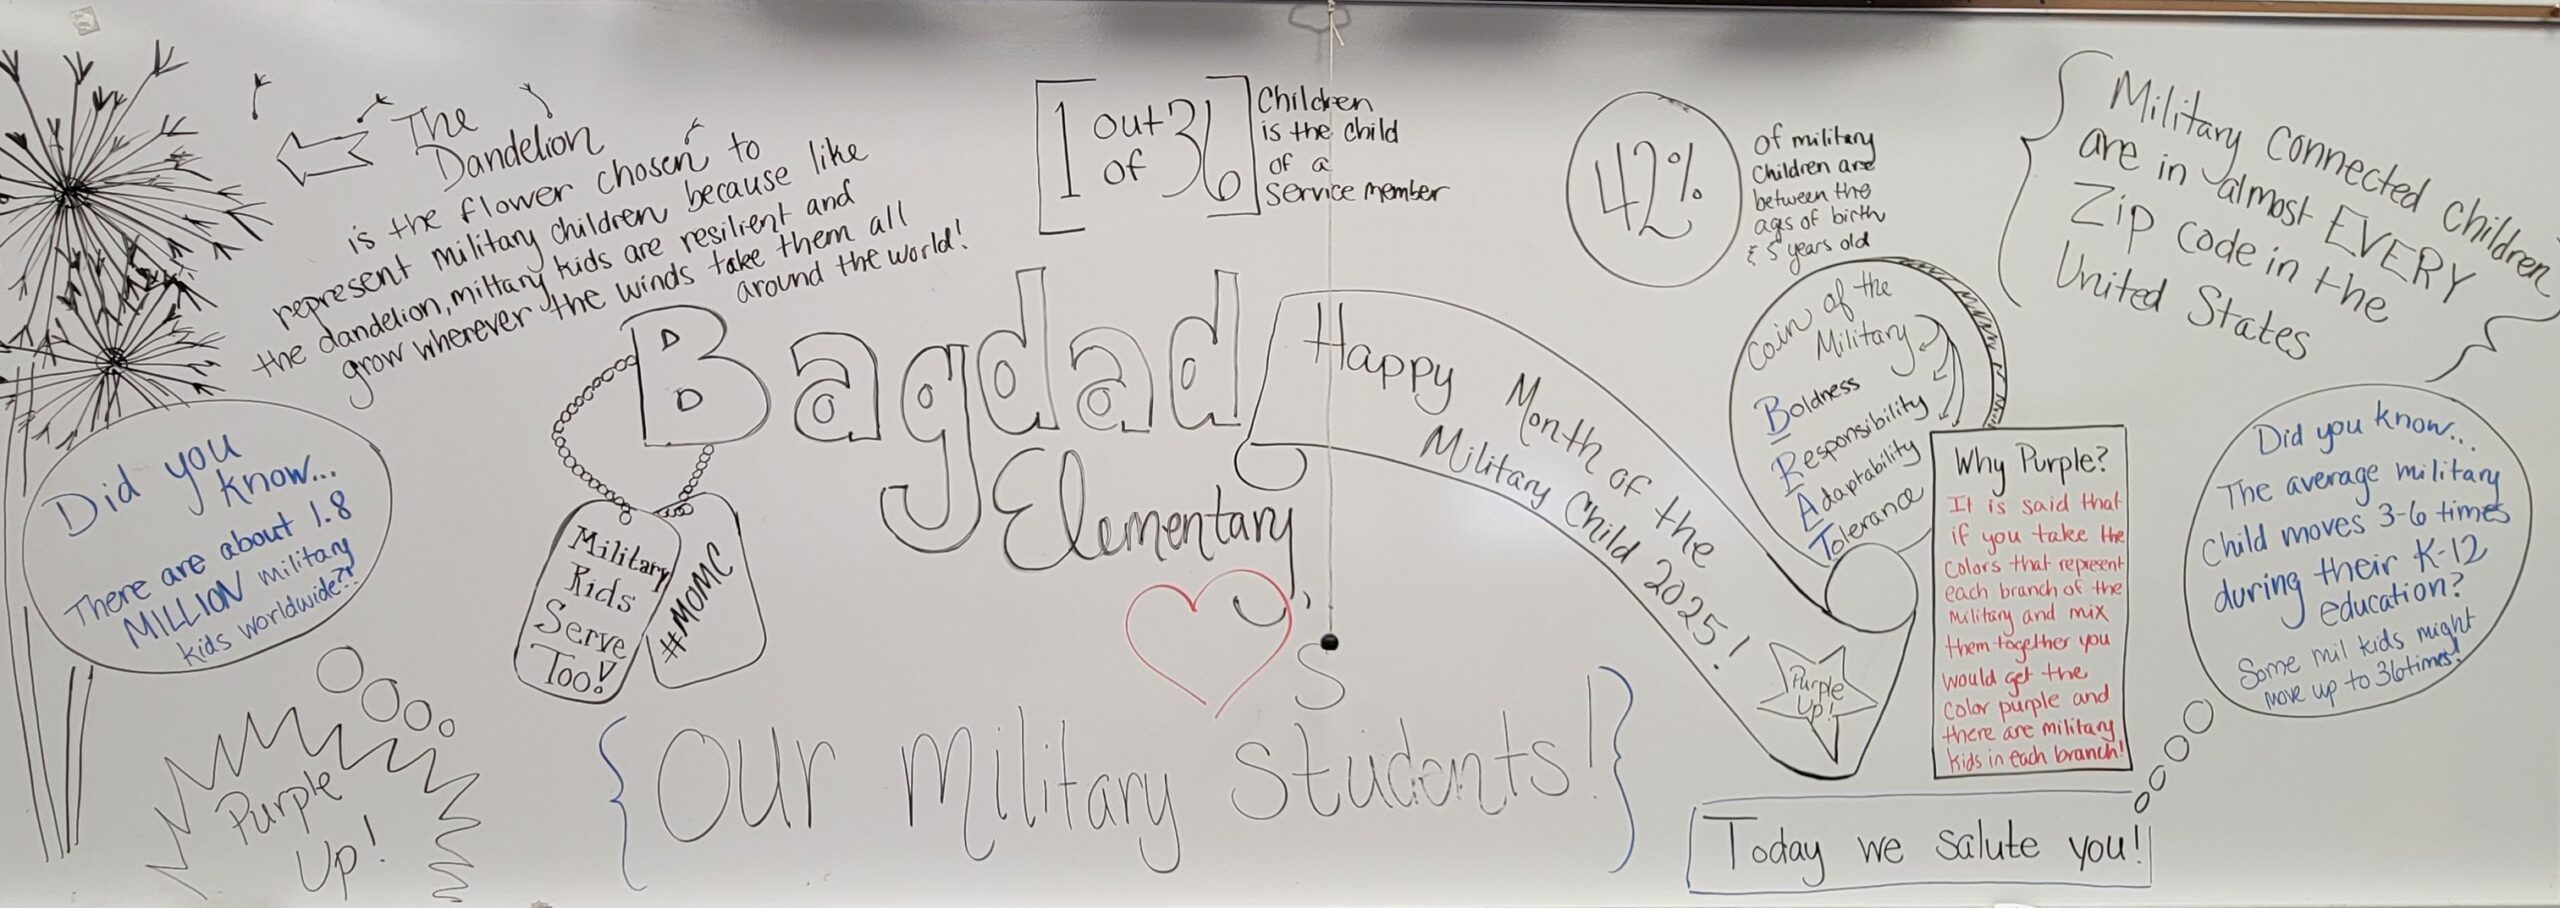 The
Dandelion
is the flower chosen to
represent military children because like
the dandelion, military kids are resilient and
grow wherever the winds take them all
around the world!
1 out of 36
Children
is the child
of a
Service member
42%
of military
Children are
between the
ages of birth
& 5 years old
Military Connected Children
are in almost EVERY
Zip code in the
United States
Did you
know...
There are about 1.8
MILLION military
kids worldwide?!
Military
Kids
Serve
Too!
#MOMC
Bagdad
Elementary
S
Our Military Students!
Happy Month of the
Military Child 2025!
Coin of the
Military
Boldness
Responsibility
Adaptability
Tolerance
Why Purple?
It is said that
if you take the
colors that represent
each branch of the
Military and mix
them together you
would get the
color purple and
there are military
kids in each branch!
Did you know...
The average military
Child moves 3-6 times
during their K-12
education?
Some mil kids might
move up to 36 times!
Purple
Up!
Purple
Up!
Today we salute you!